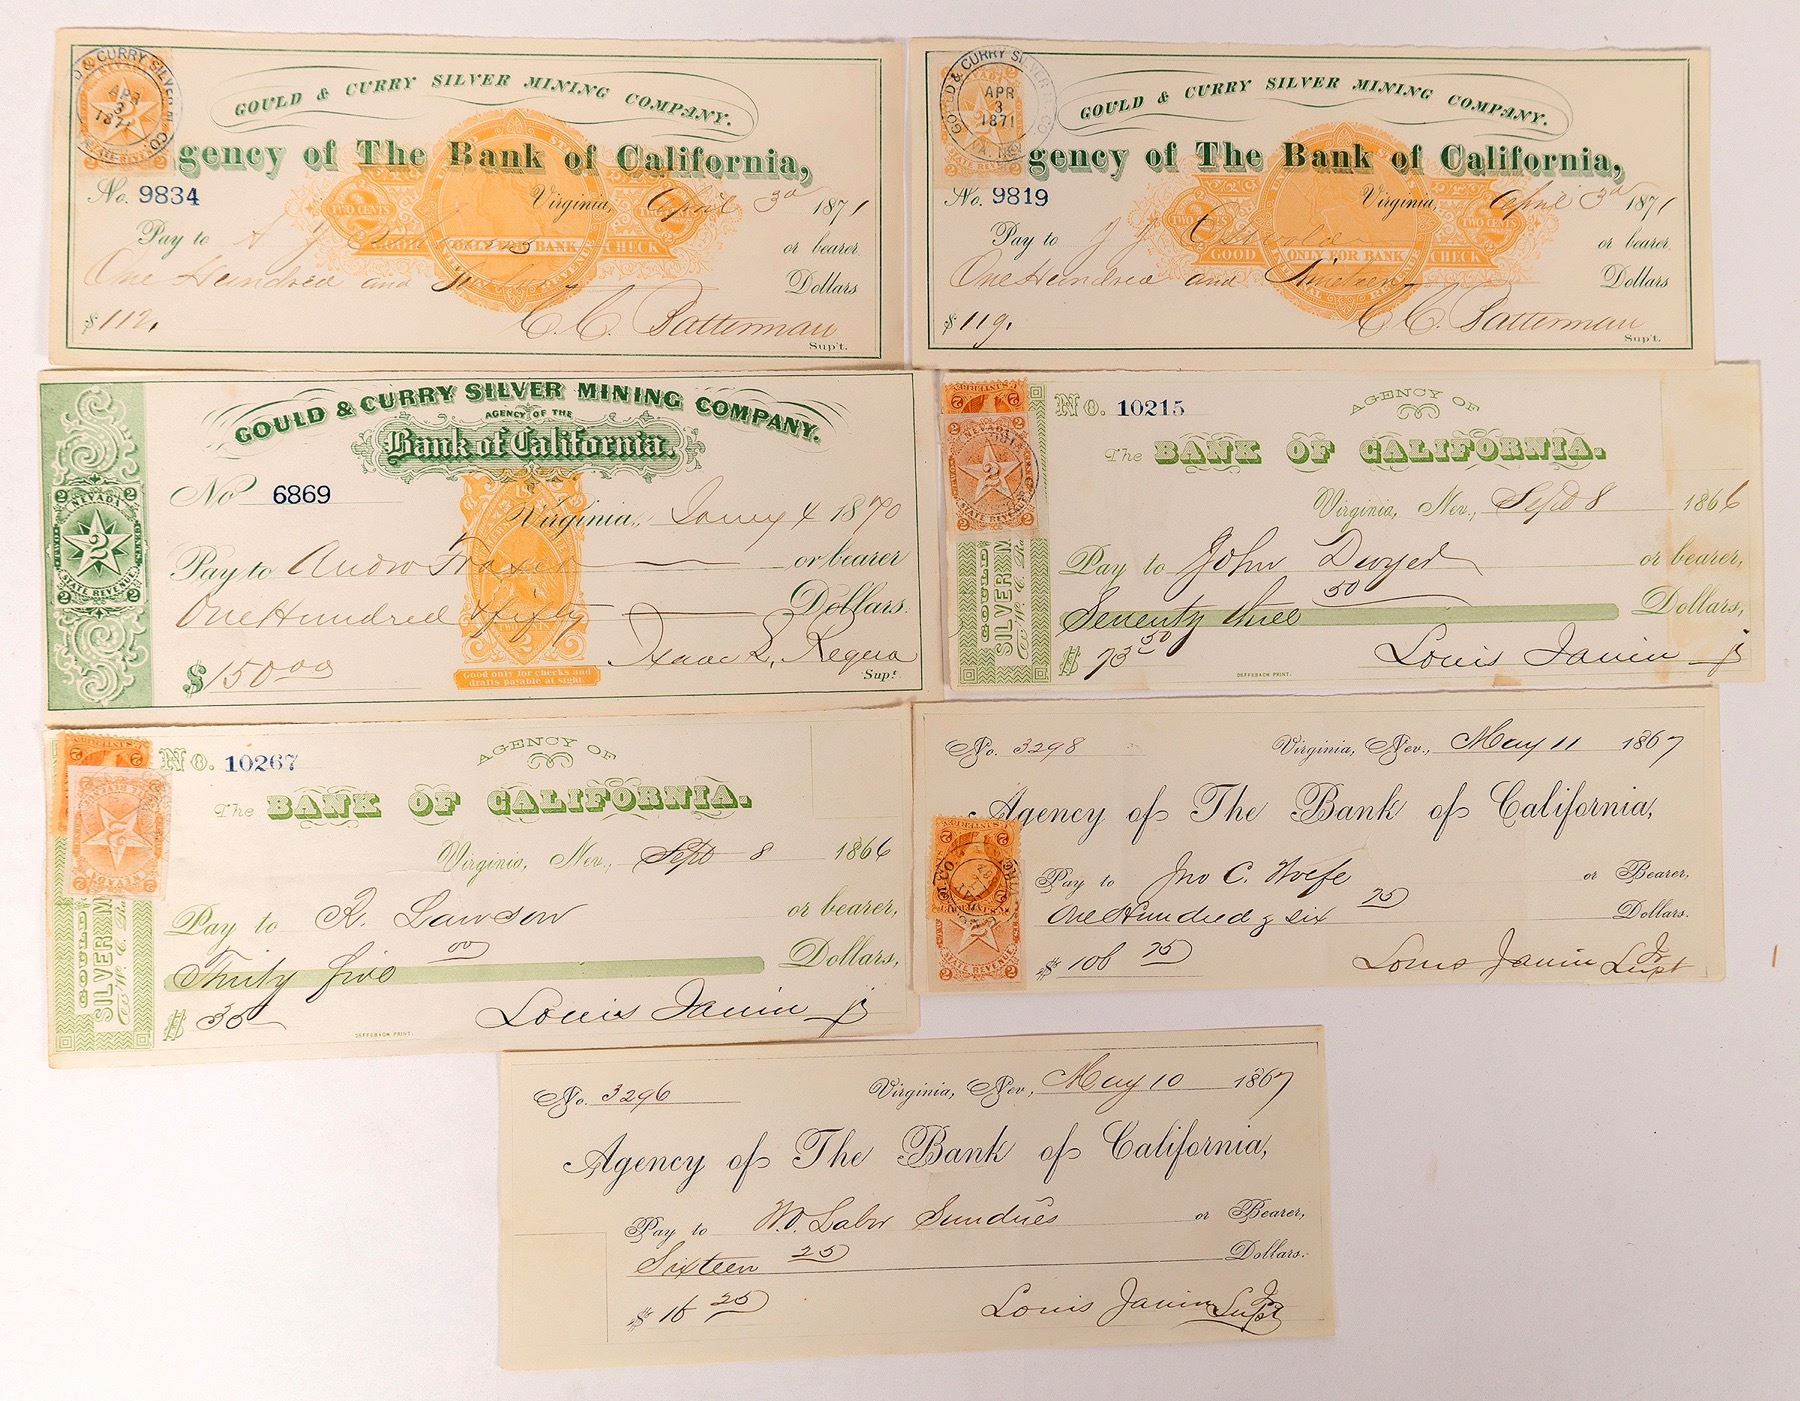 GOULD & CURRY SILVER MINING COMPANY.
GOULD & CURRY SILVER MINING CO
APR
3
1871
STATE REVENUE
gency of The Bank of California,
No. 9834
Virginia, April 3d 1871
Pay to or bearer
TWO CENTS
GOOD ONLY FOR BANK CHECK
One Hundred and Dollars
$112. C. C. Batterman
Sup't.
GOULD & CURRY SILVER MINING COMPANY.
GOULD & CURRY SILVER CO
APR
3
1871
gency of The Bank of California,
No. 9819
Virginia, April 3d 1871
Pay to or bearer.
TWO CENTS
GOOD ONLY FOR BANK CHECK
One Hundred and Nineteen Dollars
$119. C. C. Batterman
Sup't.
GOULD & CURRY SILVER MINING COMPANY.
AGENCY OF THE
Bank of California.
2 NEVADA 2
TWO CENTS
2
STATE REVENUE
2 2
No 6869
Virginia, Jany 4 1870
Pay to Andw Fraser or bearer
One Hundred & fifty Dollars.
TWO CENTS
$150.00
Sup't.
Good only for checks and
drafts payable at sight.
2 2
NEVADA
2
STATE REVENUE
2 2
GOULD
SILVER M
No. 10215
AGENCY OF
The BANK OF CALIFORNIA.
Virginia, Nev., Sept 8 1866
Pay to John Dwyer or bearer,
Seventy three 50 Dollars,
$ 73 50 Louis Janin Jr
DEFFEBACH PRINT.
2
NEVADA
GOULD
SILVER M
No. 10267
AGENCY OF
The BANK OF CALIFORNIA.
Virginia, Nev., Sept 8 1866
Pay to R. Lawson or bearer,
Thirty five 00 Dollars,
$ 35 Louis Janin Jr
DEFFEBACH PRINT.
No. 3298 Virginia, Nev., May 11 1867
Agency of The Bank of California,
Pay to Jno C. Wolfe or Bearer,
One Hundred & six 25 Dollars.
$ 106 25 Louis Janin Jr
Supt
2
STATE REVENUE
2 2
No. 3296 Virginia, Nev., May 10 1867
Agency of The Bank of California,
Pay to W. O. Labor Sundries or Bearer,
Sixteen 25 Dollars.
$ 16 25 Louis Janin Jr
Supt